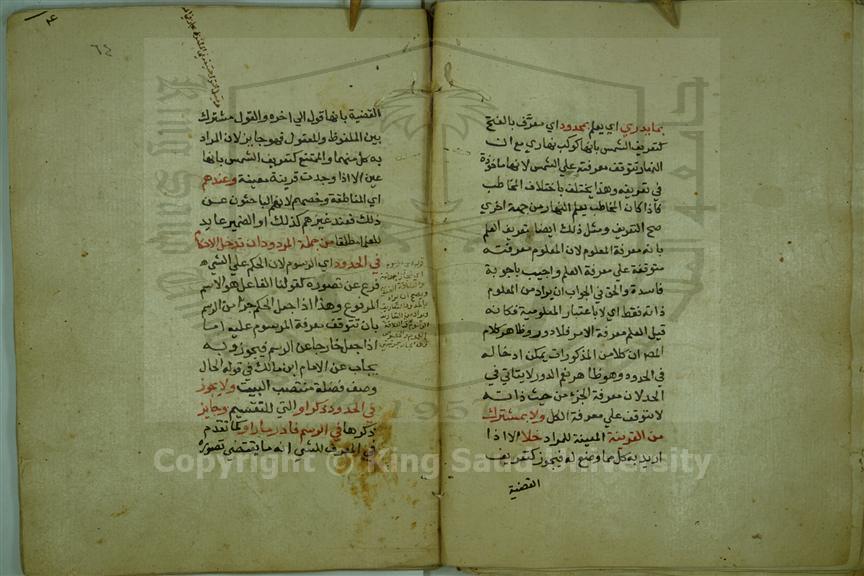 بما يدري اي يعلم بمحدود اي معرَّف بالفتح
كتعريف الشمس بانها كوكب نهاري مع ان
النهار تتوقف معرفته علي الشمس لانها ماخوذة
في تعريفه وهذا يختلف باختلاف المخاطب
فاذا كان المخاطب يعلم النهار من جهة اخري
صح التعريف ومثل ذلك ايضا تعريف العلم
بانه معرفة المعلوم لان المعلوم معرفته
متوقفة علي معرفة العلم واجيب باجوبة
فاسدة والحق في الجواب ان يراد من المعلوم
ذاته فقط اي لا باعتبار المعلومية فكانه
قيل العلم معرفة الامر فلا دور وظاهر كلام
المص ان كلا من المذكورات يمكن ادخاله
في الحدود وهو ظاهر نعم الدور لا يتاتي في
الحد لان معرفة الجزء من حيث ذاته
لا تتوقف علي معرفة الكل ولا بمشترك
من القرينة المعينة للمراد خلا الا اذا
اريد به كل مما وضع له فيجوز كتعريف
القضية
القضية بانها قول الي اخره والقول مشترك
بين الملفوظ والمعقول فهو جايز لان المراد
به كل منهما وامتنع كتعريف الشمس بانها
عين الا اذا وجدت قرينة معينة وعندهم
اي المناطقة وخصهم لانهم الباحثون عن
ذلك فعند غيرهم كذلك او الضمير عايد
للعلماء مطلقا من جملة المردود ان تدخل الاحكام
في الحدود اي الرسوم لان الحكم علي الشيء
فرع عن تصوره كقولنا الفاعل هو الاسم
المرفوع وهذا اذا جعل الحكم جزا من الرسم
بان تتوقف معرفة المرسوم عليه اما
اذا جعل خارجا عن الرسم فيجوز وبه
يجاب عن الامام ابن مالك في قوله الحال
وصف فضلة منتصب البيت ولا يجوز
في الحدود ذكر او التي للتقسيم وجايز
ذكرها في الرسم فادر ما رووا لما تقدم
في المعرف للشي انه ما يقتضي تصوره
Copyright © King Saud University
1957